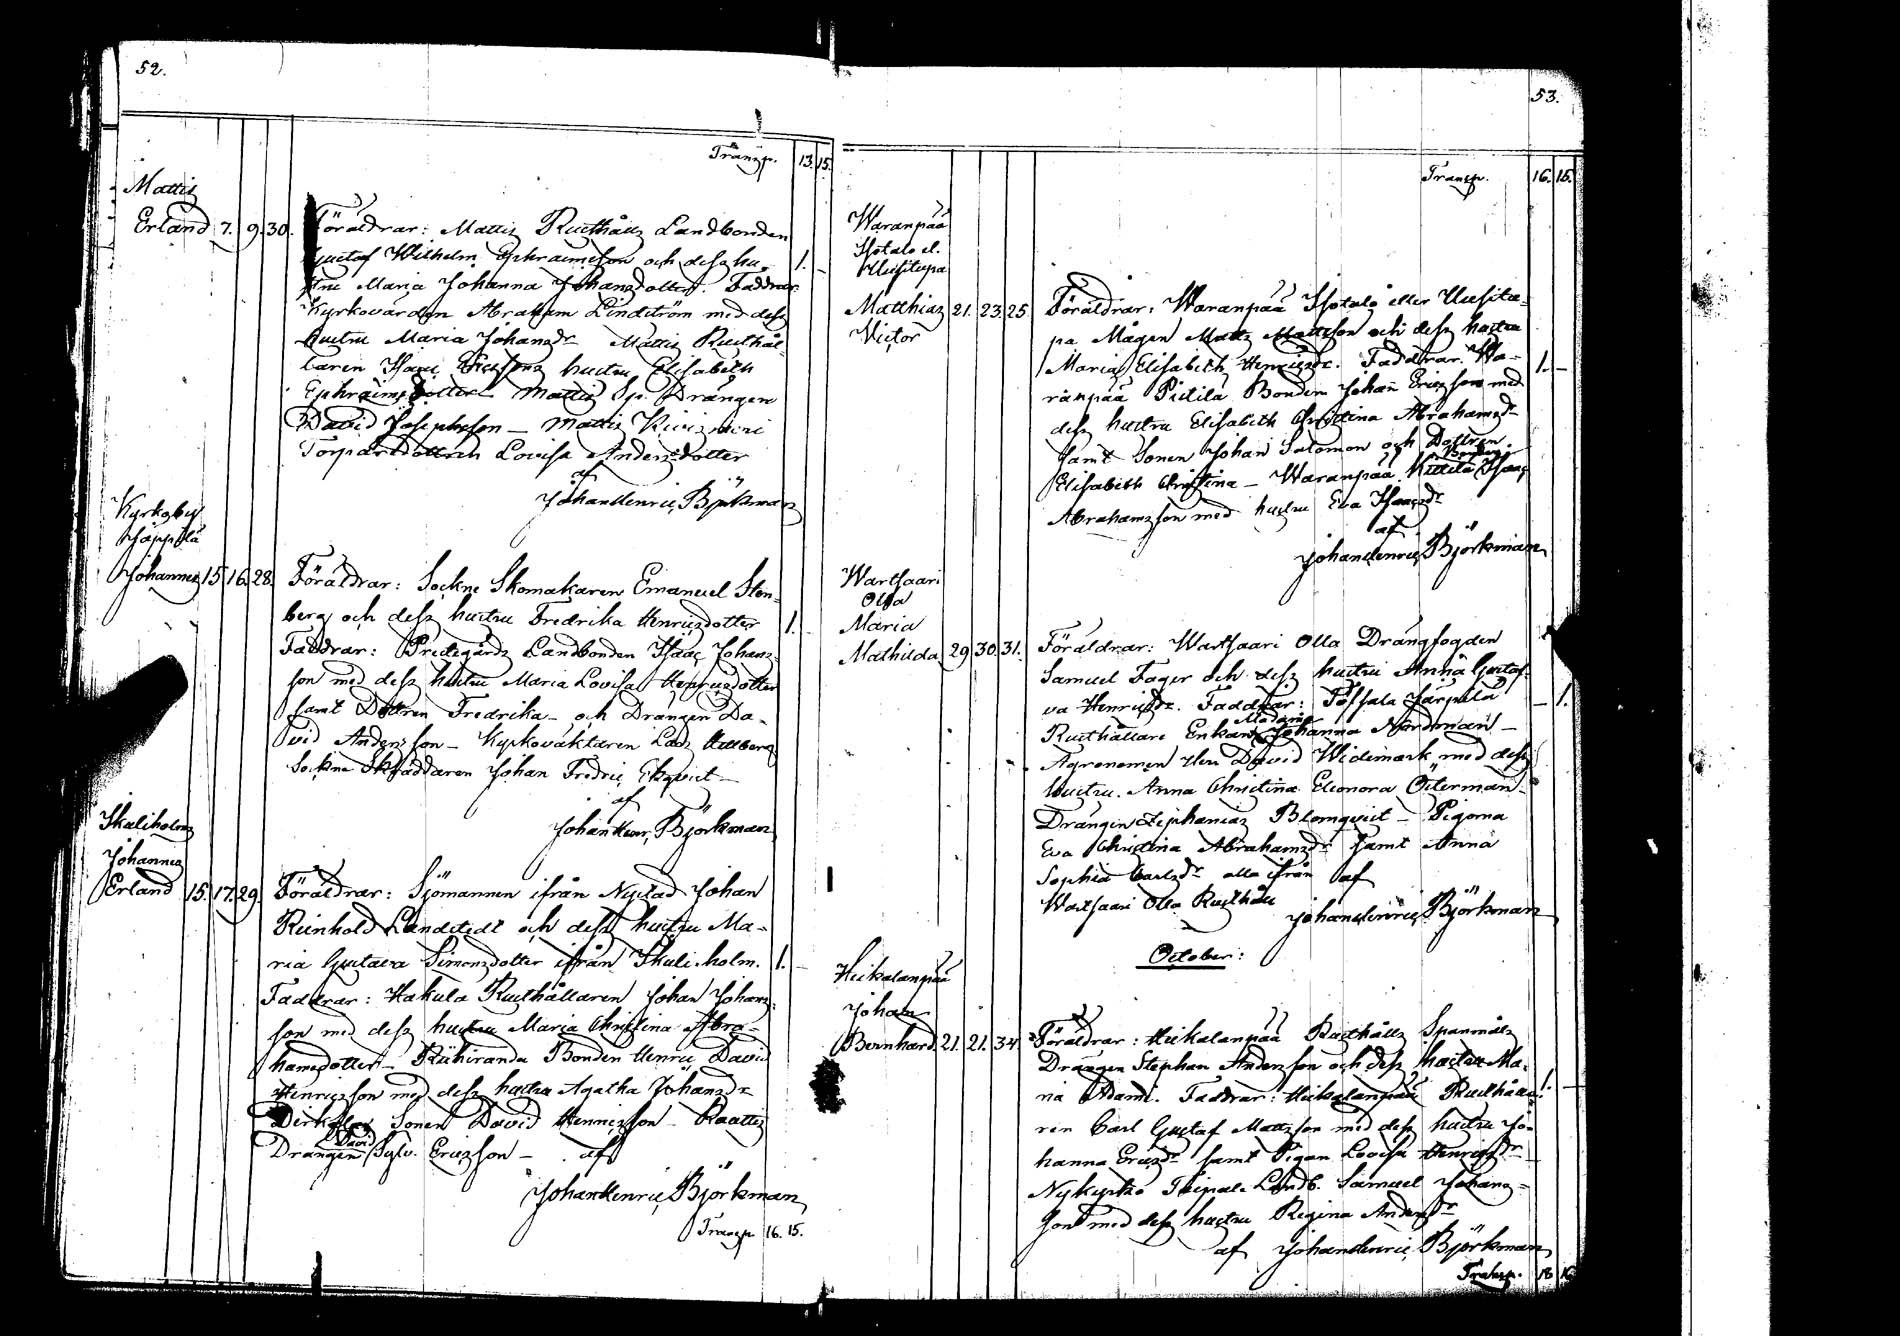 52.
Transp. 13. 15.
Mattis
Erland 7. 9. 30. Föräldrar: Mattis Rusthålls Landbonden
Gustaf Wilhelm Ephraimsson och dess hu- 1. –
stru Maria Johanna Johansdotter. Faddrar:
Kyrkovärden Abraham Lindström med dess
hustru Maria Johansdr Mattis Rusthål-
laren Isaac Ericssons hustru Elisabeth
Ephraimsdotter Mattis Sp. Drängen
David Josephsson – Mattis
Torparedottren Lovisa Andersdotter
af
Johan Henric Björkman
Kyrkoby
Jäppilä
Johannes 15 16. 28. Föräldrar: Sockne Skomakaren Emanuel Sten-
berg och dess hustru Fredrika Henricsdotter 1. –
Faddrar: Prestgårds Landbonden Isaac Johans-
son med dess hustru Maria Lovisa Henricsdotter
samt Dottren Fredrika – och Drängen Da-
vid Andersson – Kyrkoväktaren
Sockne Skräddaren Johan Fredric Ekqvist –
af
Johan Henr. Björkman
Skaliholm
Johannes
Erland 15. 17. 29. Föräldrar: Sjömannen ifrån Nystad Johan
Reinhold Landstedt och dess hustru Ma-
ria Gustava Simonsdotter ifrån Skaliholm. 1. –
Faddrar: Hakula Rusthållaren Johan Johans-
son med dess hustru Maria Christina Abra-
hamsdotter – Riihiranda Bonden Henric David
Henricsson med dess hustru Agatha Johansdr
Sonen David Henricsson – Raattis
David
Drängen Sylv. Ericsson – af
Johan Henric Björkman
Transp 16. 15.
53.
Transp. 16. 15.
Waranpää
Isotalo el.
Uusitupa
Matthias 21. 23. 25. Föräldrar: Waranpää Isotalo eller Uusitu-
Victor pa Mågen Matts Mattsson och dess hustru
Maria Elisabeth Henricsdr. Faddrar: Wa- 1. –
ranpää Pietilä Bonden Johan Ericsson med
dess hustru Elisabeth Christina Abrahamsdr
samt Sonen Johan Salomon och Dottren
Elisabeth Christina – Waranpää Kittilä Bonden Isaac
Abrahamsson med hustru Eva Isaacsdr
af
Johan Henric Björkman
Wartsaari
Olla
Maria
Mathilda 29 30. 31. Föräldrar: Wartsaari Olla Drängfogden
Samuel Fager och dess hustru Anna Gusta-
va Henricsdr. Faddrar: Töfsala Järppilä – 1.
Rusthållare Enkan Madame Johanna Nordman –
Agronomen Herr David Widemark med dess
hustru Anna Christina Eleonora Österman –
Drängen Zephanias Blomqvist – Pigorna
Eva Christina Abrahamsdr samt Anna
Sophia Carlsdr alla ifrån af
Wartsaari Olla Rusthåll Johan Henric Björkman
October:
Heikalanpää
Johan
Bernhard 21. 21. 34. Föräldrar: Heikalanpää Rusthålls Spanmåls
Drängen Stephan Andersson och dess hustru Ma-
ria Adami. Faddrar: Heikalanpää Rusthålla- 1. –
ren Carl Gustaf Mattsson med dess hustru Jo-
hanna Ericsdr samt Pigan Lovisa Henricsdr –
Nykyrko Taipale Landb. Samuel Johans-
son med dess hustru Regina Andersdr
af Johan Henric Björkman
Transp. 18 16